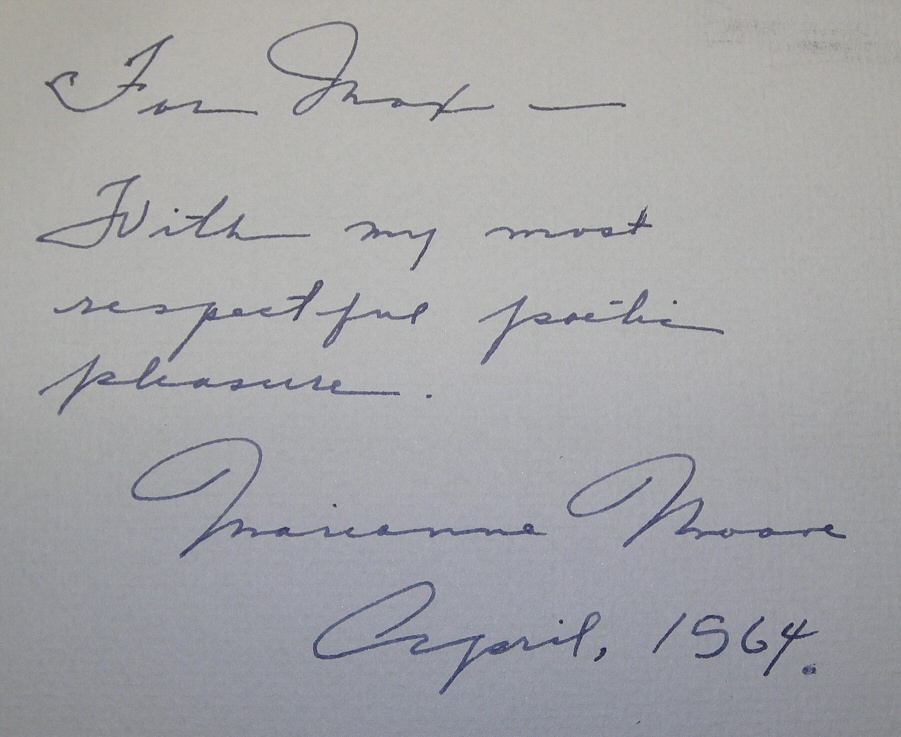 For Max —
With my most
respectful poetic
pleasure.
Marianne Moore
April, 1964.